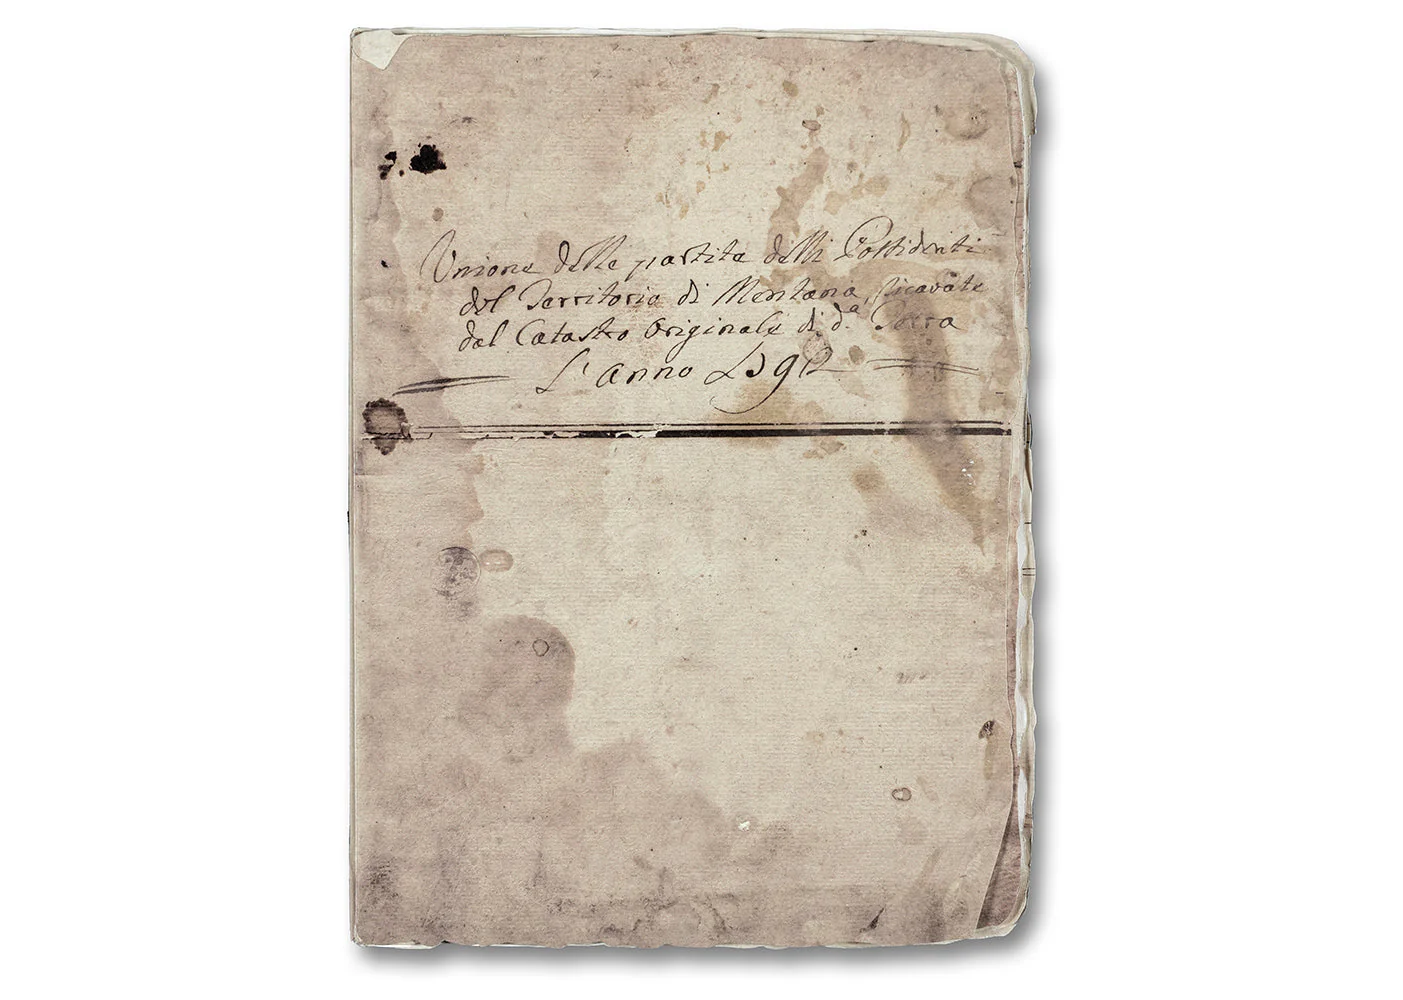 Unione delle partite delli Possidenti
del Territorio di Mentana, ricavate
dal Catasto Originale di d.ª Terra
L'anno